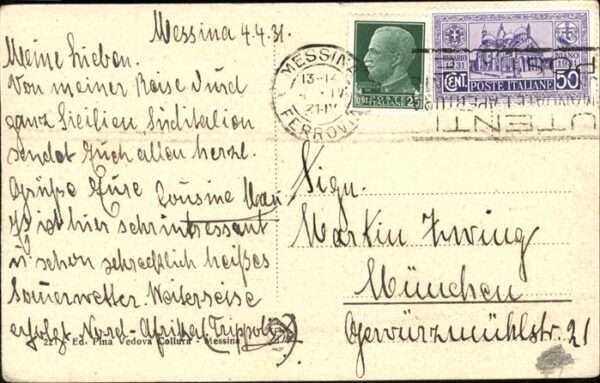 Messina 4.4.31.
Meine Lieben.
Von meiner Reise durch
ganz Sicilien, Süditalien
sendet Euch allen herzl.
Grüße Eure Cousine
Es ist hier sehr intressant
u. schon schrecklich heißes
Sommerwetter. Weiterreise
erfolgt Nord-Afrika (Trippolis)
227 - Ed. Pina Vedova Collura - Messina
MESSINA
13-14
FERROVIA
CENT. 25
CENT. 50
POSTE ITALIANE
UTENTI
Sign.
Martin Zwing
München
Gewürzmühlstr. 21